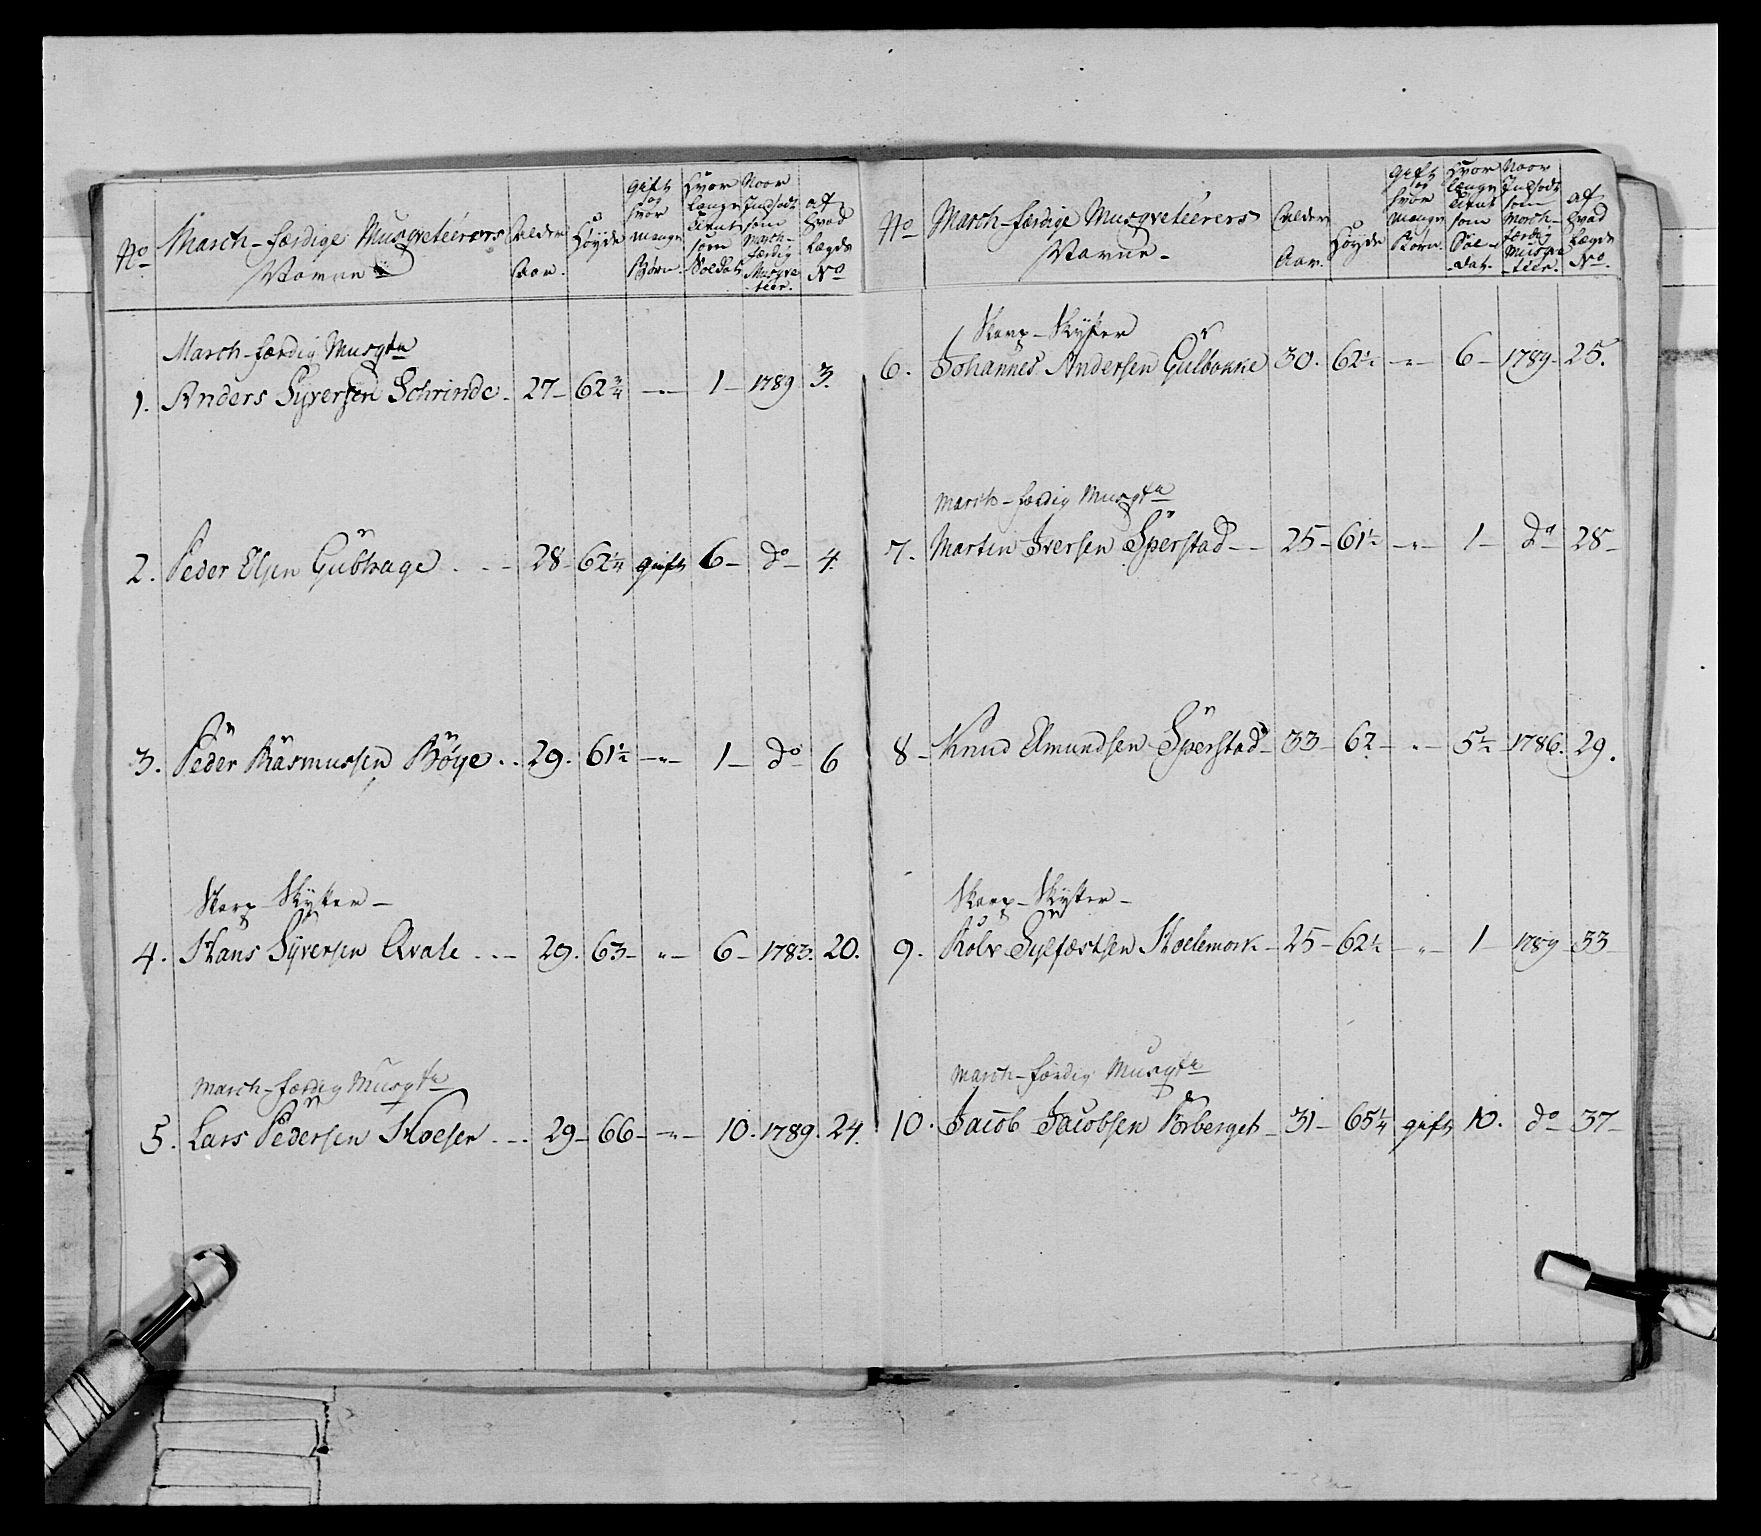 No
March-færdige Musqveteerers Navne
Alder Aar.
Høyde
Gift og hvor mange Børn.
Hvor længe tient som Soldat
Naar Indsadt som March-færdig Musqve-teer.
af hvad Lægds No
March-færdig Musqtr
1. Anders Syversen Schrinde - 27 - 62 3/4 - " - 1 - 1789 3.
2. Peder Elsen Gubhage . - - 28 - 62 1/4 gift 6 - do - 4.
3. Peder Rasmussen Bøye . . 29. 61 1/2 - " - 1 - do 6
Skarp-Skytter -
4. Hans Syversen Qvale . . - 29. 63 - " - 6 - 1783. 20.
March-færdig Musqtr
5. Lars Pedersen Moesen . - - 29 - 66 - " - 10. 1789. 24.
No
March-færdige Musqveteerers Navne -
Alder Aar.
Høyde
Gift og hvor mange Børn.
Hvor længe tient som Sol-dat.
Naar Indsadt som March-færdig Musqve-teer.
af hvad Lægds No.
Skarp-Skytter
6. Johannes Andersen Gulbakke 30. 62 1/2 - " - 6 - 1789 - 25.
March-færdig Musqtr
7. Marten Iversen Sperstad - - 25 - 61 1/2 - " - 1 - do 28 -
8 - Knud Amundsen Sperstad - 33 - 62 - " - 5 1/2 - 1786. 29.
Skarp-Skytter -
9. Rolv Sylfæstsen Moelemork - 25 - 62 1/2 - " - 1 - 1789 - 33
March-færdig Musqtr
10. Jacob Jacobsen Forberget - 31 - 65 1/4 gift 10. do 37 -